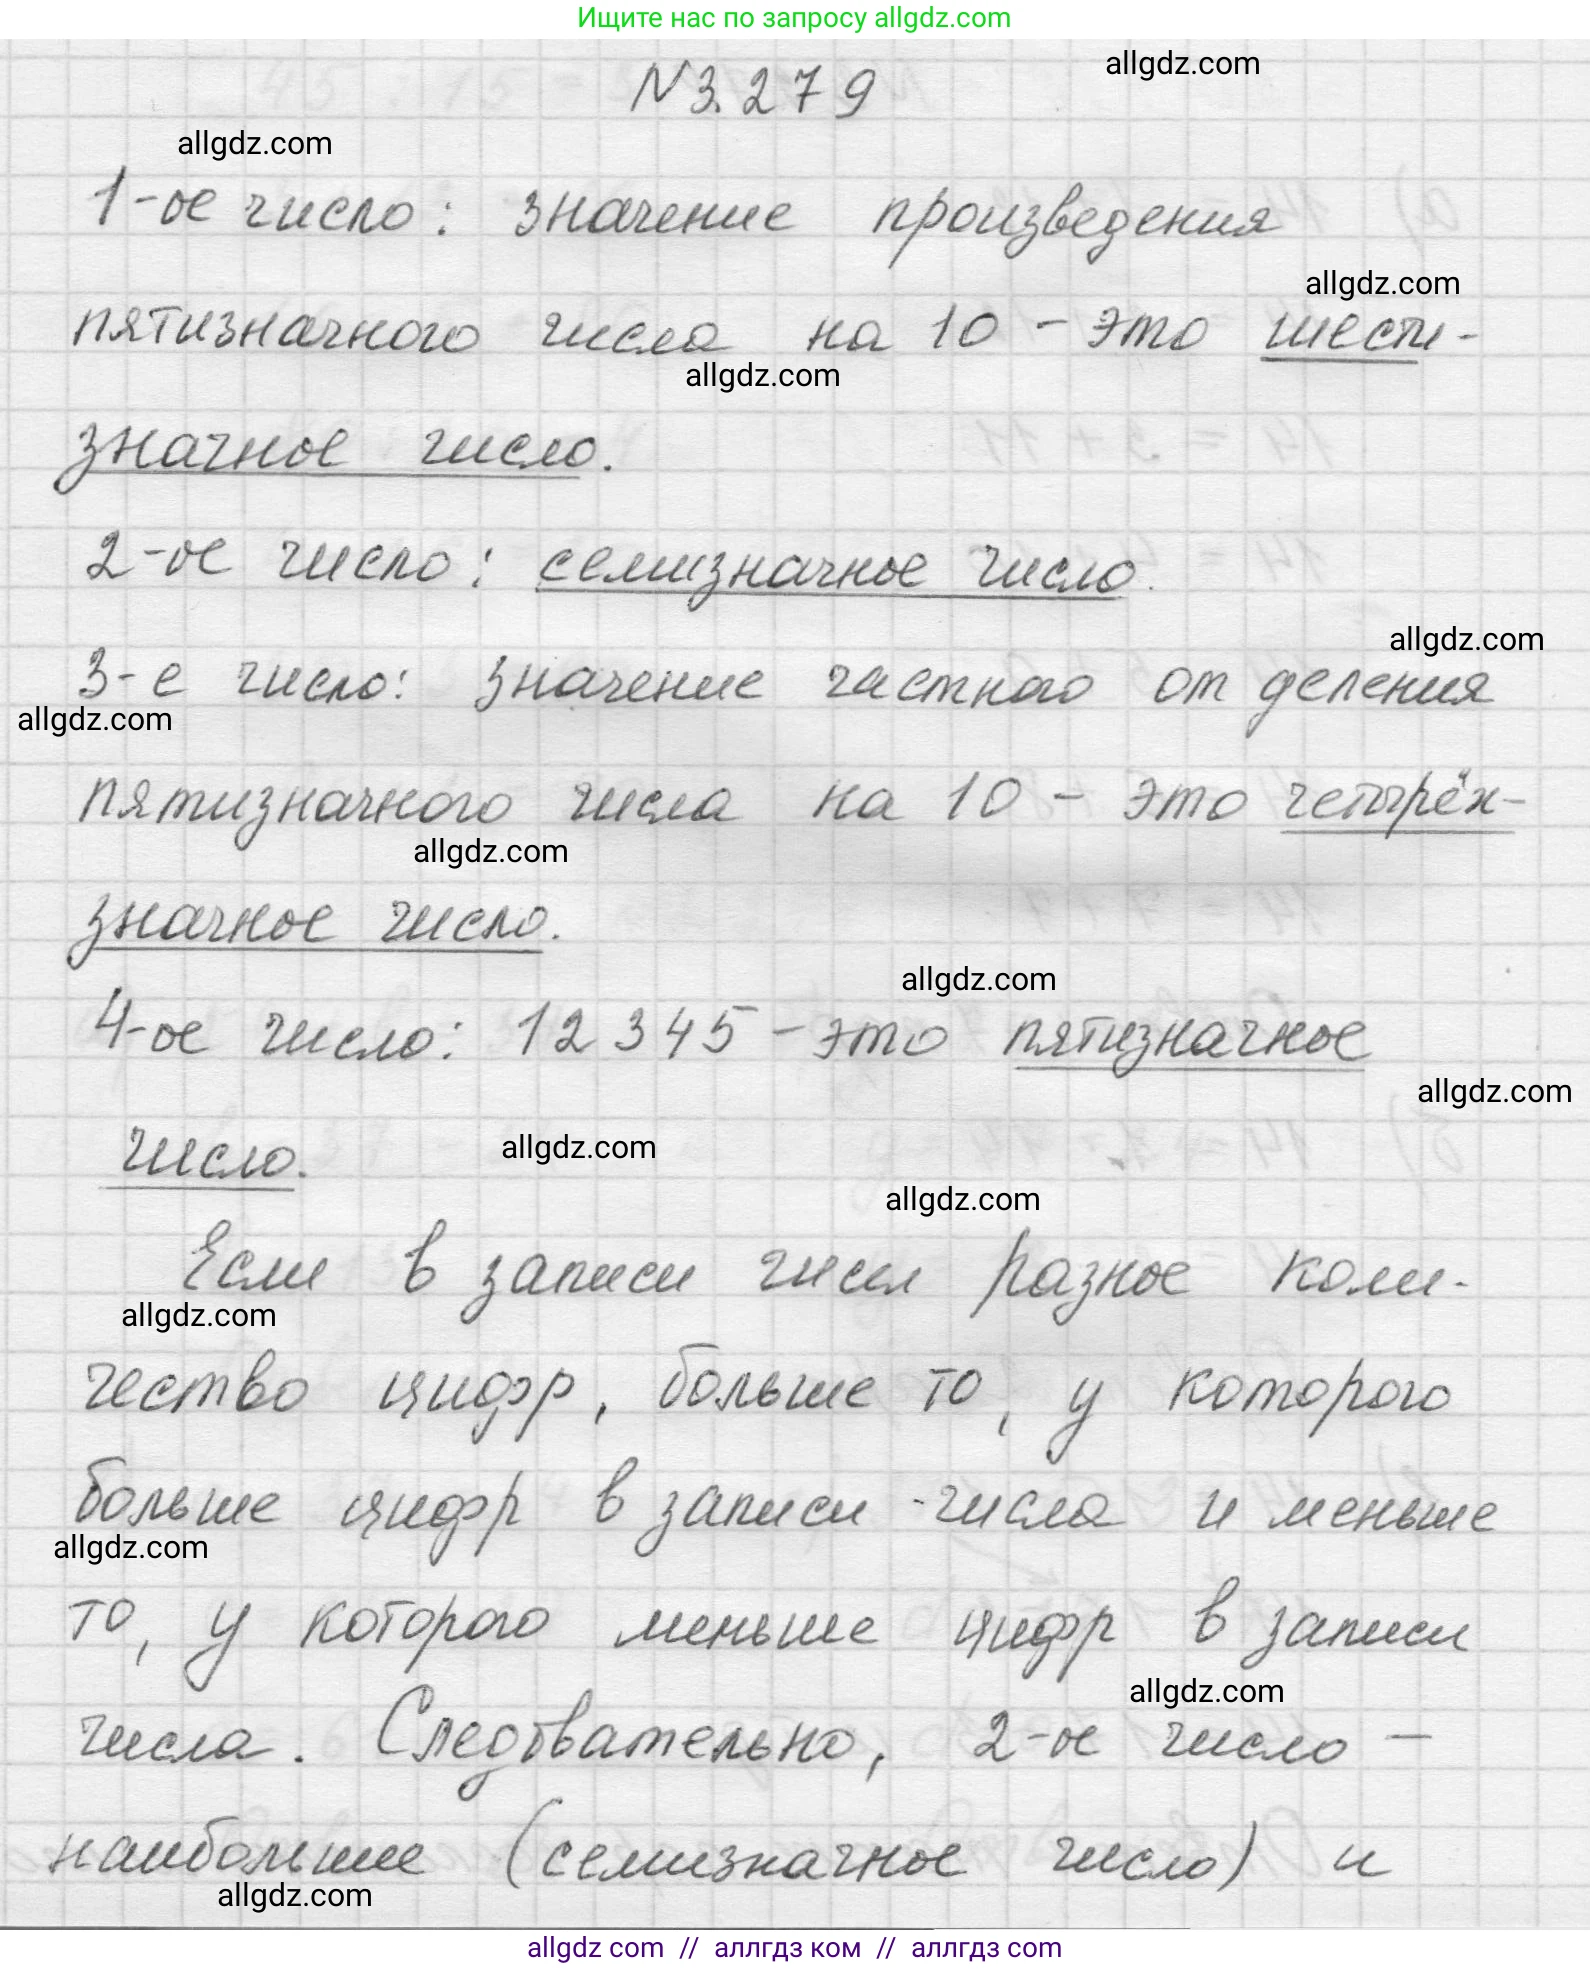 Ищите нас по запросу allgdz.com
allgdz.com
N 3.279
allgdz.com
1-ое число: значение произведения
allgdz.com
пятизначного числа на 10 - это шести-
allgdz.com
значное число.
2-ое число: семизначное число.
allgdz.com
3-е число: значение частного от деления
allgdz.com
пятизначного числа на 10 - это четырёх-
allgdz.com
значное число.
allgdz.com
4-ое число: 12345 - это пятизначное
allgdz.com
число.
allgdz.com
allgdz.com
Если в записи чисел разное коли-
allgdz.com
чество цифр, больше то, у которого
больше цифр в записи числа и меньше
allgdz.com
то, у которого меньше цифр в записи
allgdz.com
числа. Следовательно, 2-ое число -
наибольшее (семизначное число) и
allgdz.com
allgdz com // аллгдз ком // аллгдз com